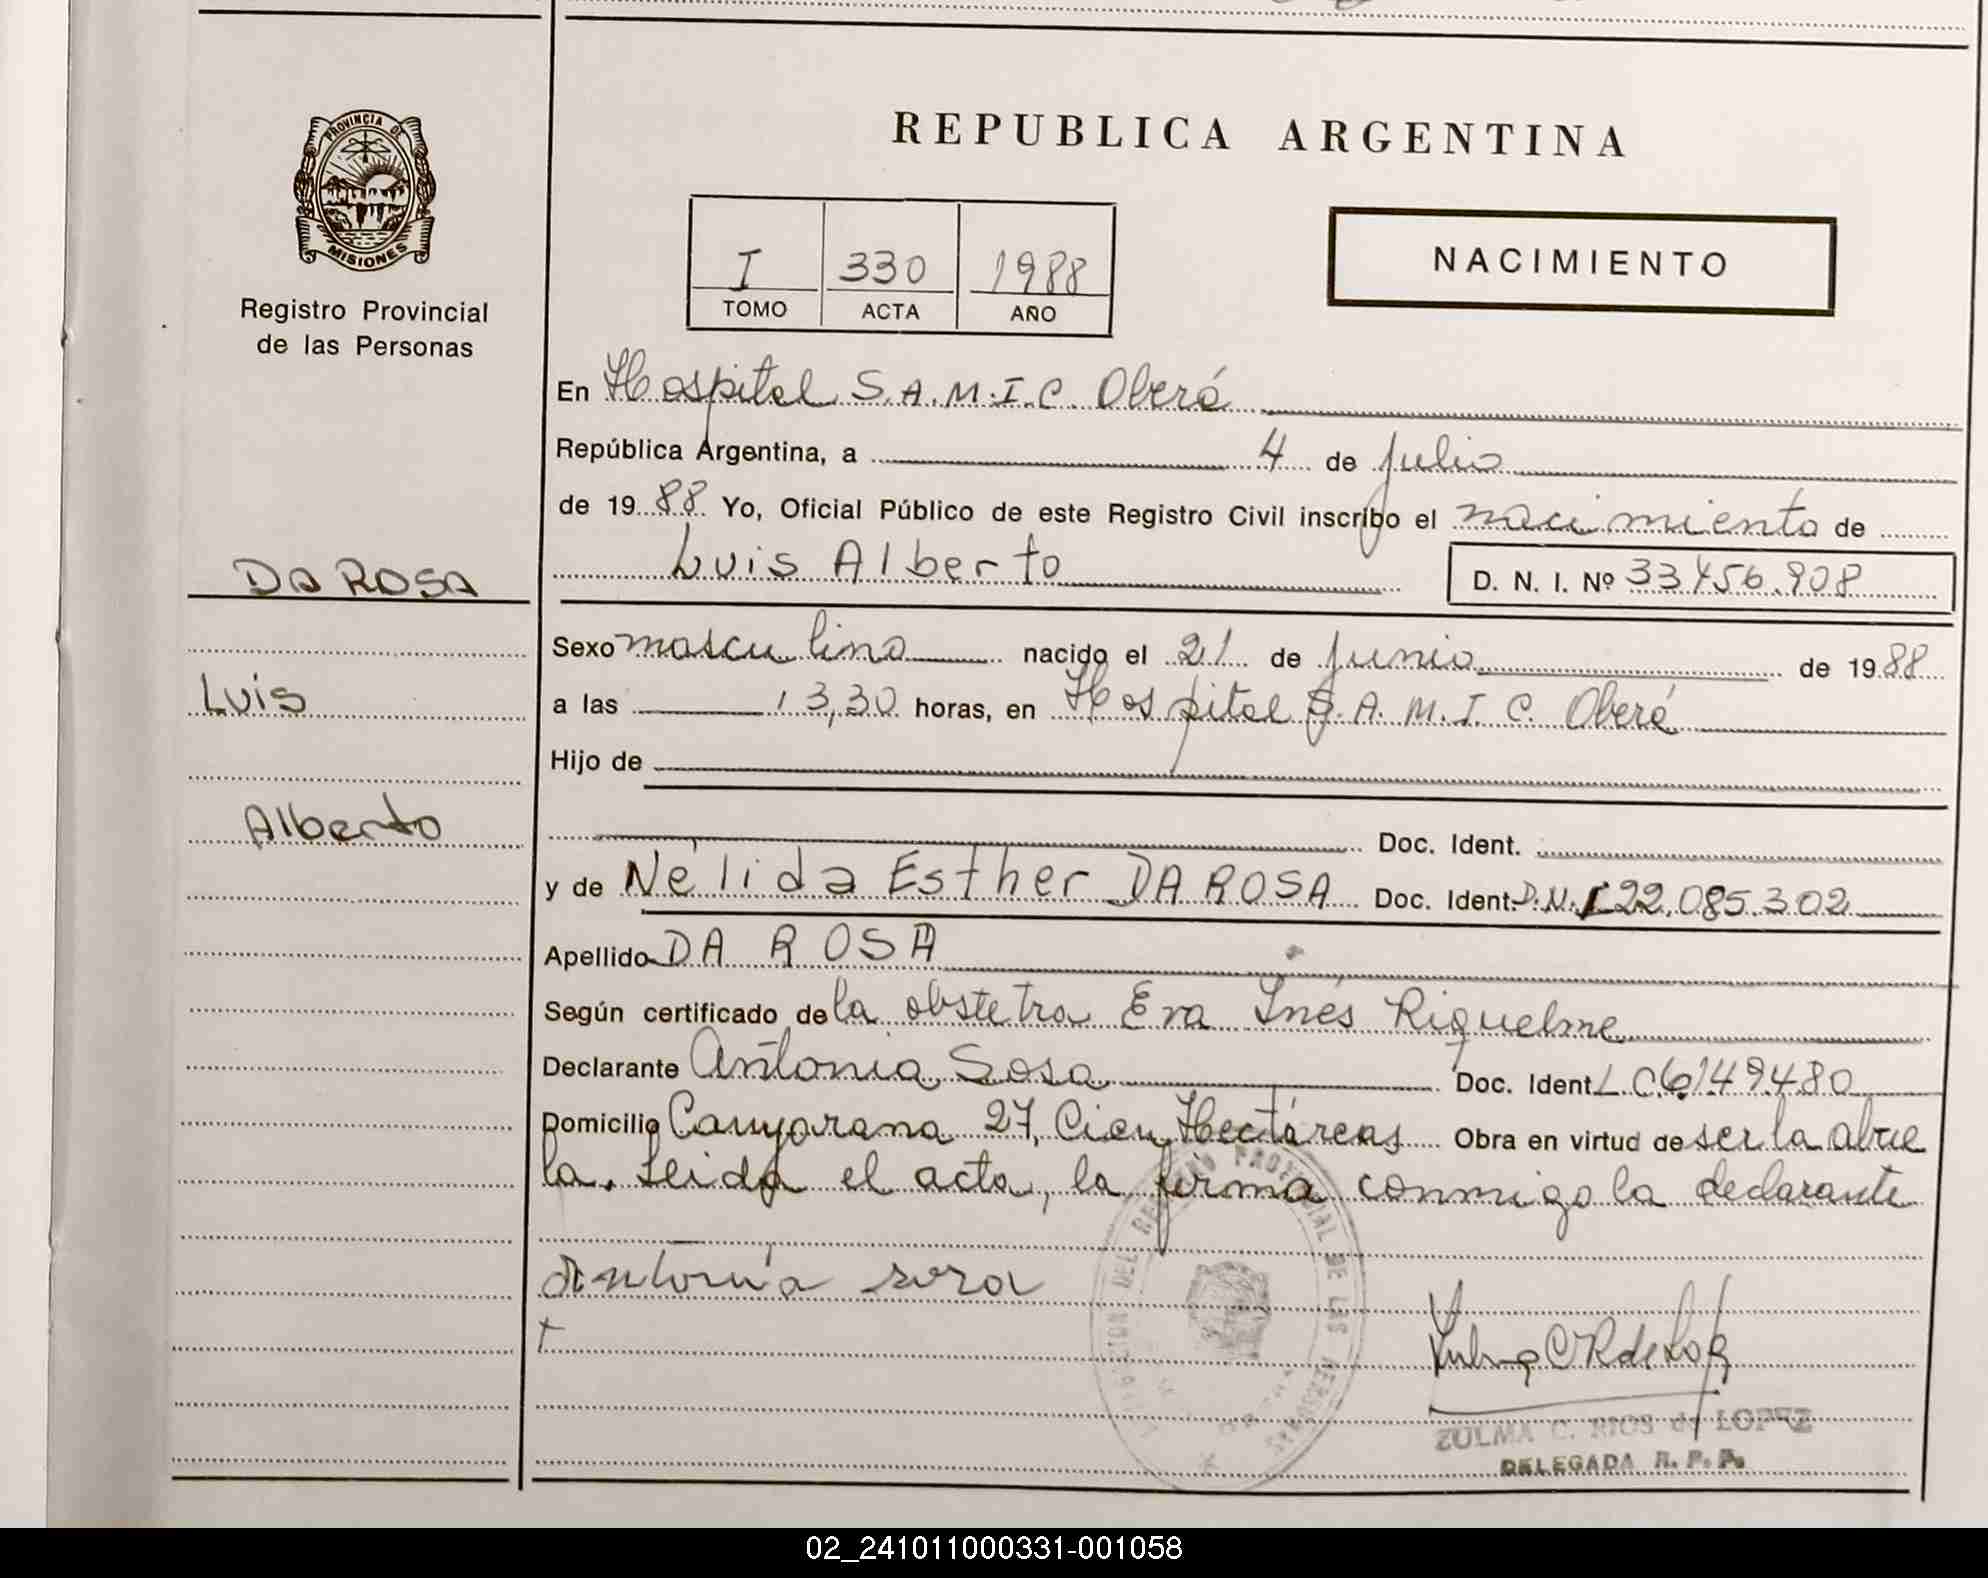 PROVINCIA DE
MISIONES
Registro Provincial
de las Personas
DA ROSA
Luis
Alberto
REPUBLICA ARGENTINA
I 330 1988
TOMO ACTA AÑO
NACIMIENTO
En Hospital S.A.M.I.C. Oberá
República Argentina, a 4 de julio
de 19 88 Yo, Oficial Público de este Registro Civil inscribo el nacimiento de
Luis Alberto D. N. I. Nº 33456.908
Sexo masculino nacido el 21 de junio de 19 88
a las 13,30 horas, en Hospital S.A.M.I.C. Oberá
Hijo de
Doc. Ident.
y de Nélida Esther DA ROSA Doc. Ident. D.N.I 22.085.302
Apellido DA ROSA
Según certificado de la obstetra Eva Inés Riquelme
Declarante Antonia Sosa Doc. Ident. L.C 6.149.480
Domicilio 27, Cien Hectáreas Obra en virtud de ser la abue
la. Leida el acta, la firma conmigo la declarante
Antonia sosa
DEL REGISTRO PROVINCIAL DE LAS PERSONAS
ZULMA C. RIOS de LOPEZ
DELEGADA R. P. P.
02_241011000331-001058